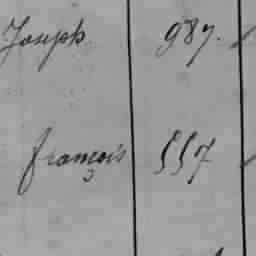 Joseph 987.
françois 557